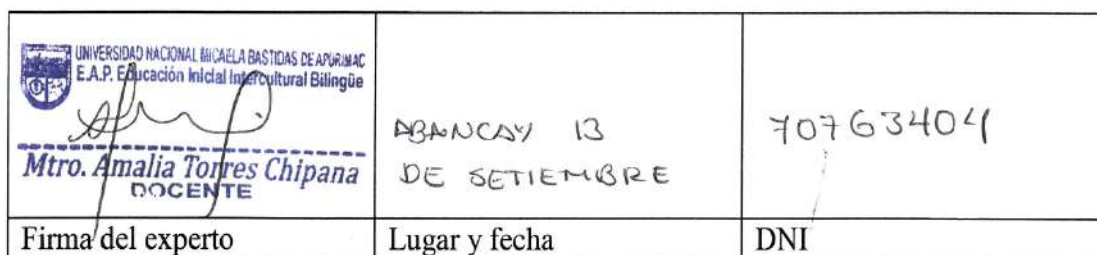 UNIVERSIDAD NACIONAL MICAELA BASTIDAS DE APURIMAC
E.A.P. Educación Inicial Intercultural Bilingüe
Mtro. Amalia Torres Chipana
DOCENTE
ABANCAY 13
DE SETIEMBRE
70763404
Firma del experto
Lugar y fecha
DNI